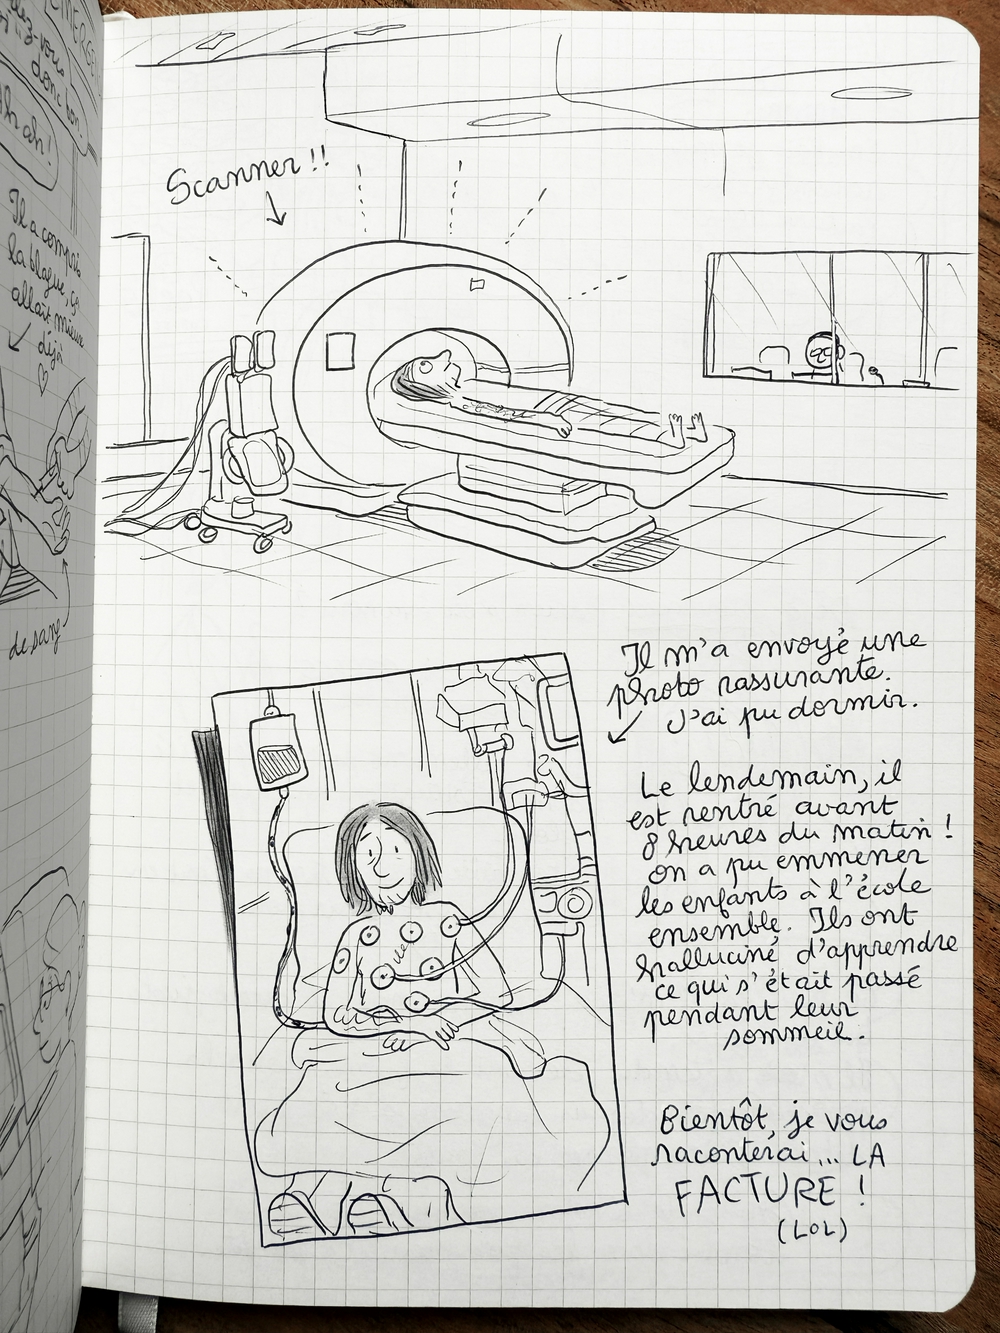 donc bon.
Ah ah!
Il a compris
la blague, ça
allait mieux
déjà
de sang
Scanner !!
Il m'a envoyé une
photo rassurante.
J'ai pu dormir.
Le lendemain, il
est rentré avant
8 heures du matin !
on a pu emmener
les enfants à l'école
ensemble. Ils ont
halluciné d'apprendre
ce qui s'était passé
pendant leur
sommeil.
Bientôt, je vous
raconterai... LA
FACTURE !
(LOL)